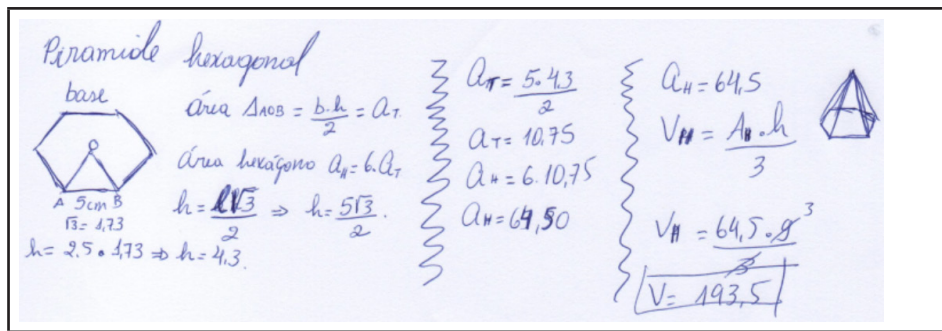 Piramide hexagonal
base
A 5cm B
√3 = 1,73
área ΔAOB = b.h/2 = aT.
área hexágono aH = 6.aT
h = l√3/2 ⇒ h = 5√3/2.
h = 2,5 . 1,73 ⇒ h = 4,3.
aT = 5.4,3/2
aT = 10,75
aH = 6.10,75
aH = 64,50
aH = 64,5
VH = AB.h/3
VH = 64,5.9/3 3
V = 193,5